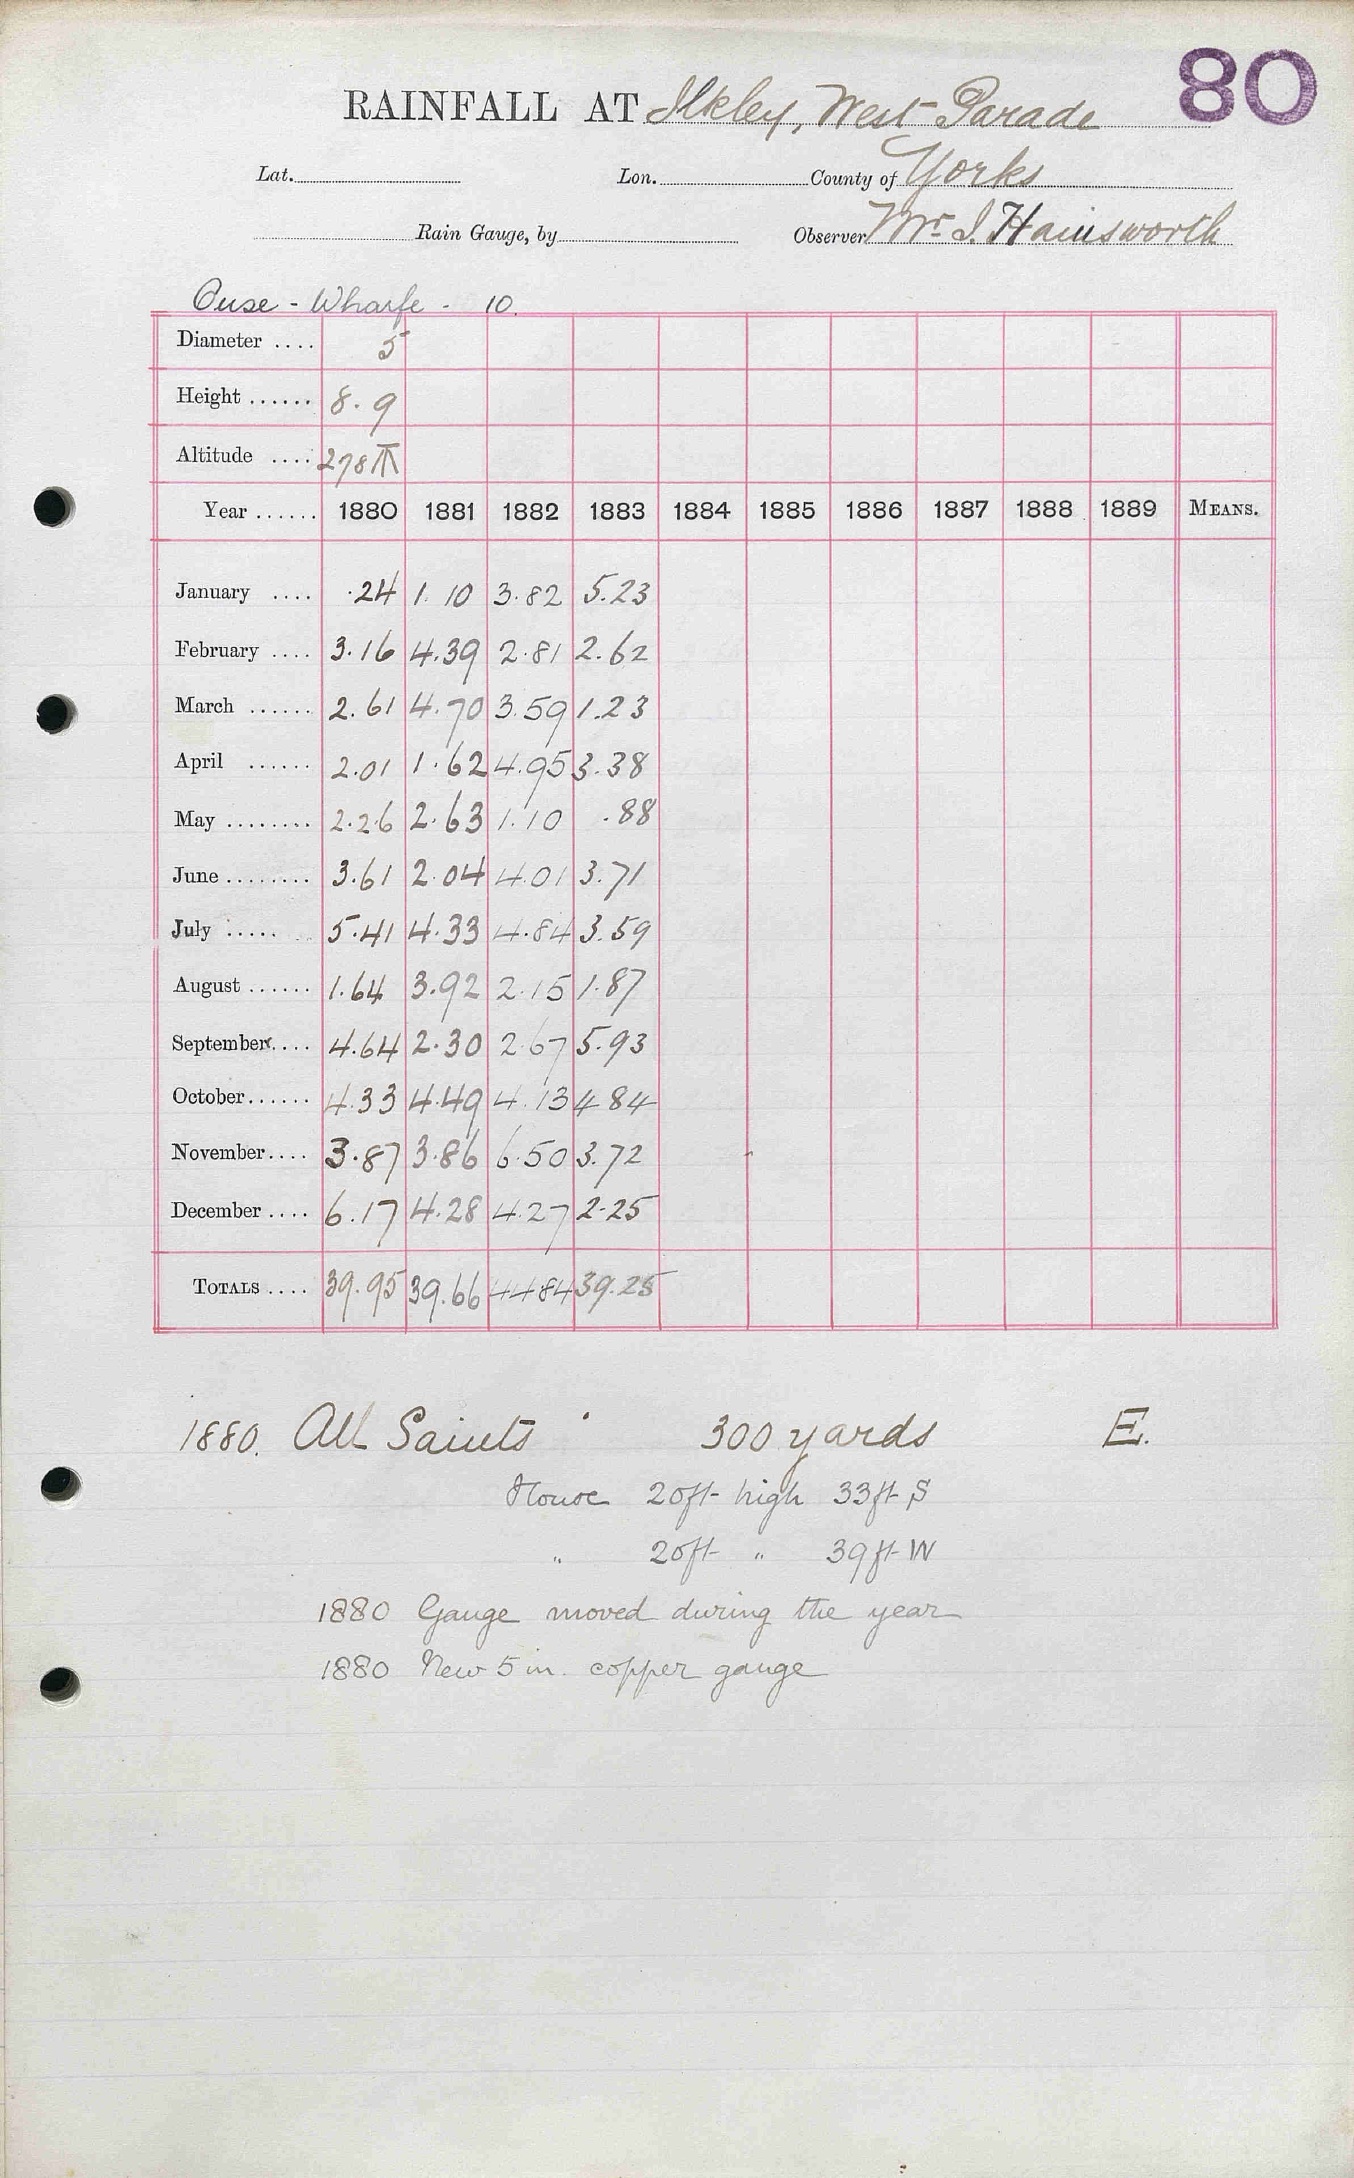 80
RAINFALL AT Ilkley, West Parade
Lat. Lon. County of Yorks
Rain Gauge, by Observer Mr. J. Hainsworth
Ouse - Wharfe - 10.
Diameter .... 5
Height ...... 8. 9
Altitude .... 278
Year ...... 1880 1881 1882 1883 1884 1885 1886 1887 1888 1889 MEANS.
January .... .24 1.10 3.82 5.23
February .... 3.16 4.39 2.81 2.62
March ...... 2.61 4.70 3.59 1.23
April ...... 2.01 1.62 4.95 3.38
May ........ 2.26 2.63 1.10 .88
June ........ 3.61 2.04 4.01 3.71
July ..... 5.41 4.33 4.84 3.59
August ...... 1.64 3.92 2.15 1.87
September.... 4.64 2.30 2.67 5.93
October...... 4.33 4.49 4.13 4 84
November.... 3.87 3.86 6.50 3.72
December .... 6.17 4.28 4.27 2.25
TOTALS .... 39.95 39.66 44 84 39.25
1880. All Saints 300 yards E.
House 20ft high 33ft S
" 20ft " 39ft W
1880 Gauge moved during the year
1880 New 5 in. copper gauge